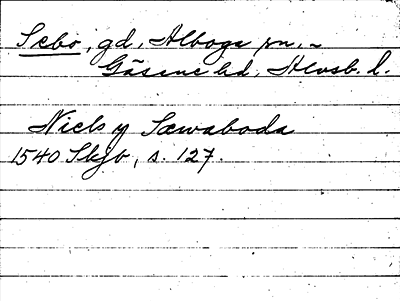 Sebo, gd, Alboga sn,
Gäsene hd, Älvsb. l.
Niels y Sæwaboda
1540 Skjb, s. 127.